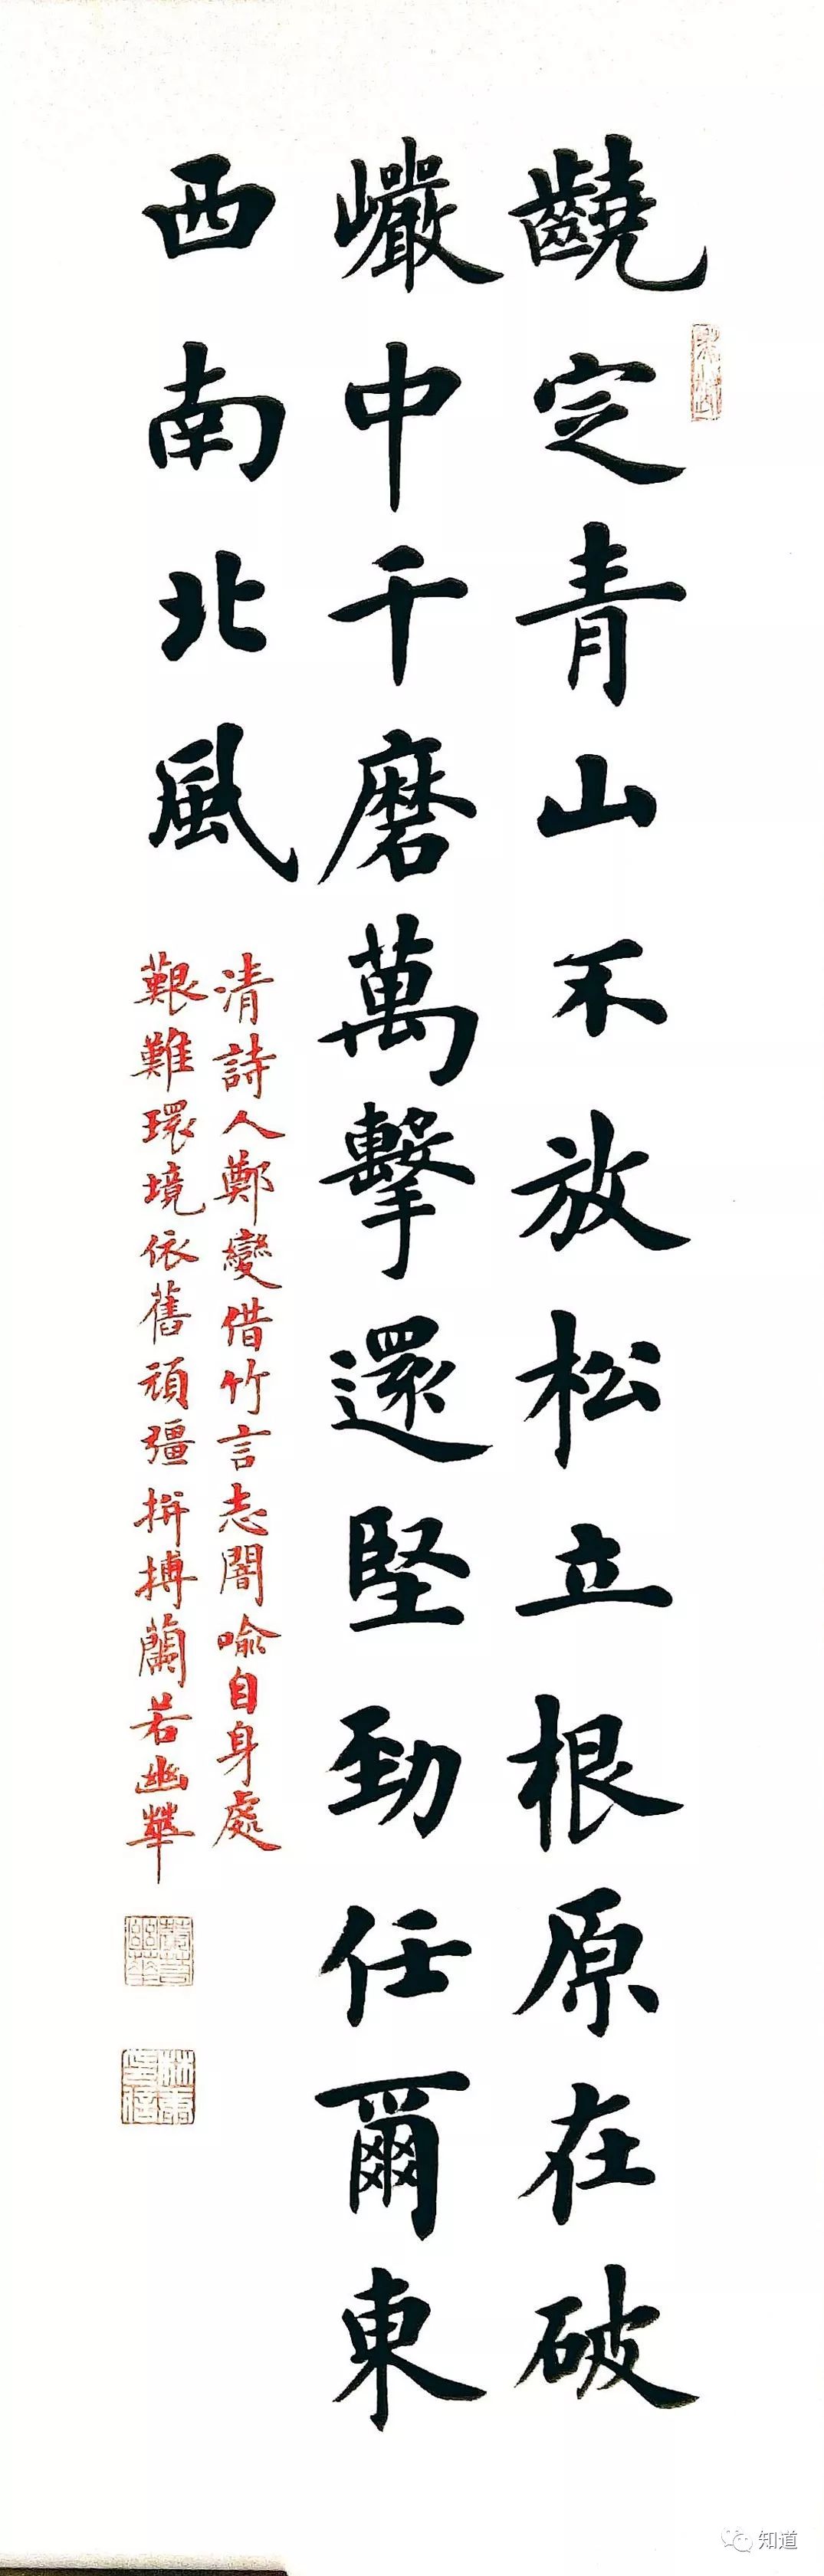 齩定青山不放松立根原在破
巗中千磨萬擊還堅勁任爾東
西南北風
清詩人鄭變借竹言志闇喻自身處
艱難環境依舊頑彊拼搏蘭若幽華
知道